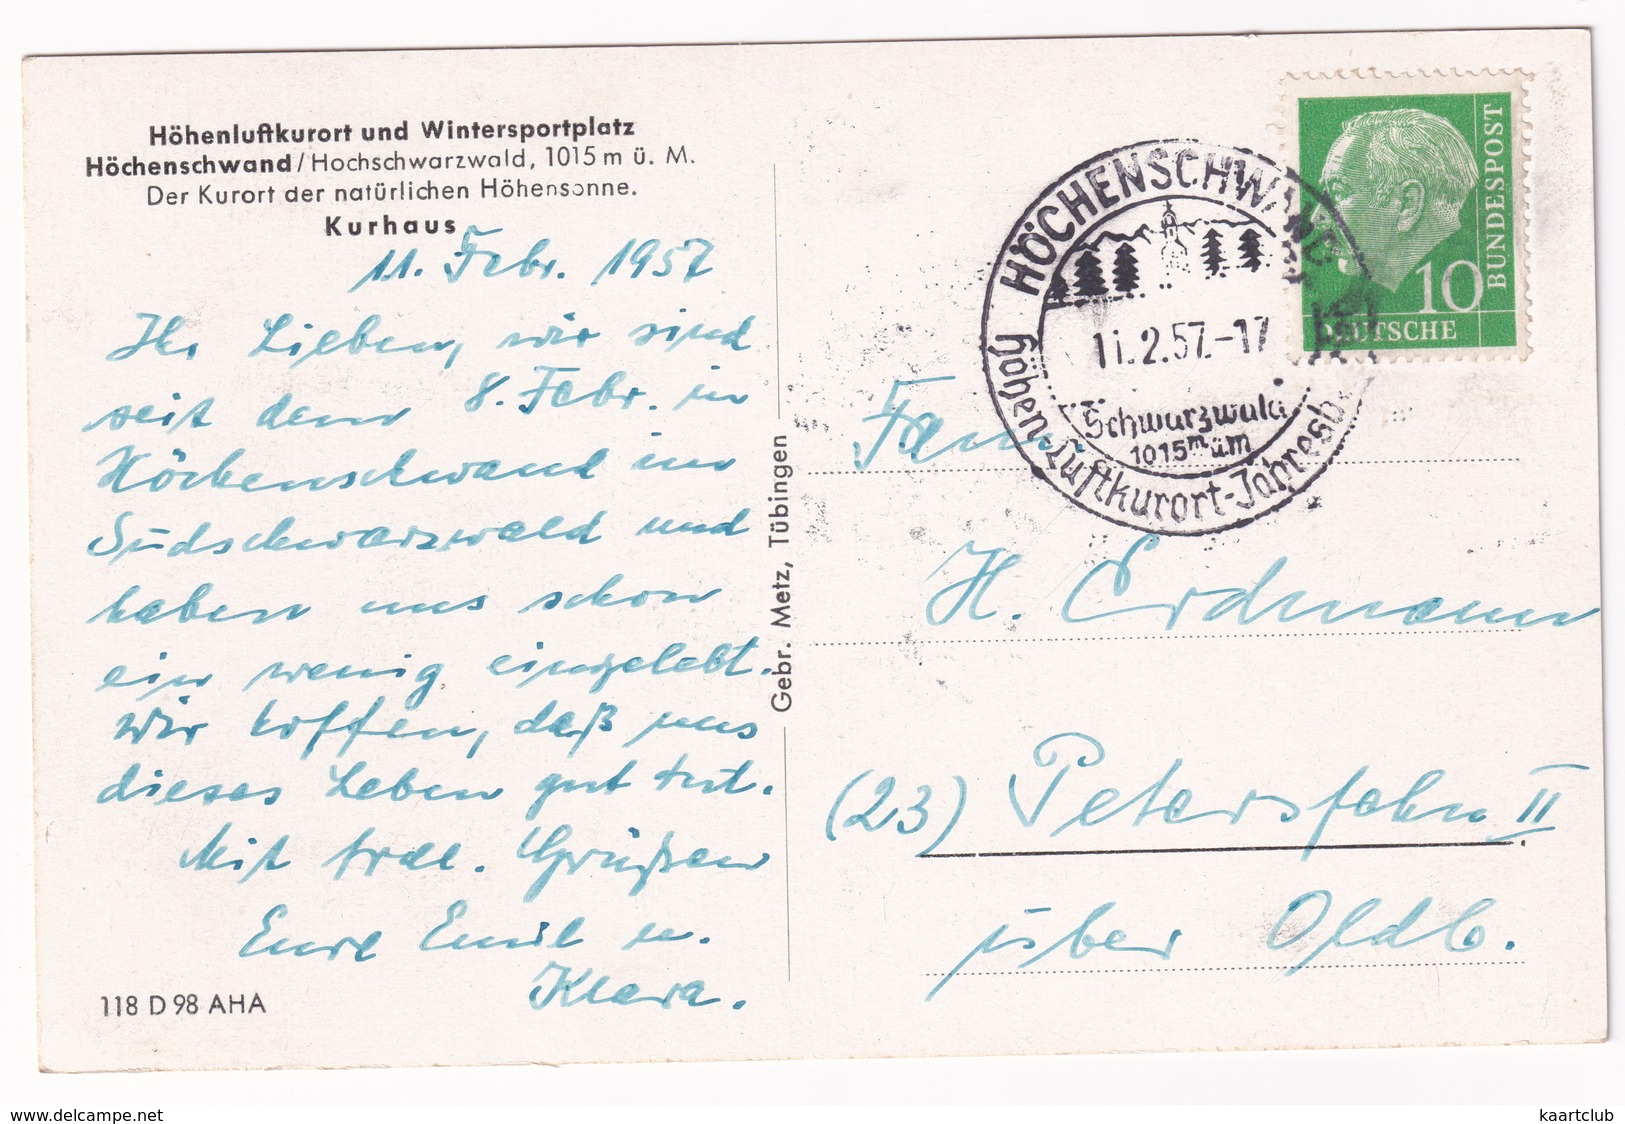 Höhenluftkurort und Wintersportplatz
Höchenschwand/Hochschwarzwald, 1015 m ü. M.
Der Kurort der natürlichen Höhensonne.
Kurhaus
11. Febr. 1957
Ihr Lieben, wir sind
seit dem 8. Febr. in
Höchenschwand im
Südschwarzwald und
haben uns schon
ein wenig eingelebt.
Wir hoffen, daß uns
dieses Leben gut tut.
Mit frdl. Grüßen
Eure Emil u.
Klara.
118 D 98 AHA
Gebr. Metz, Tübingen
HÖCHENSCHWAND
11.2.57.-17
Schwarzwald
1015 m ü m
Höhen-Luftkurort-Jahresb
BUNDESPOST
10
DEUTSCHE
Fam.
H. Erdmann
(23) Petersfehn II
über Oldb.
www.delcampe.net
kaartclub